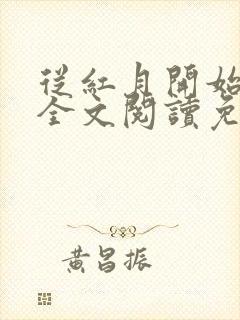 從紅月開始
全文閱讀免
黃昌振